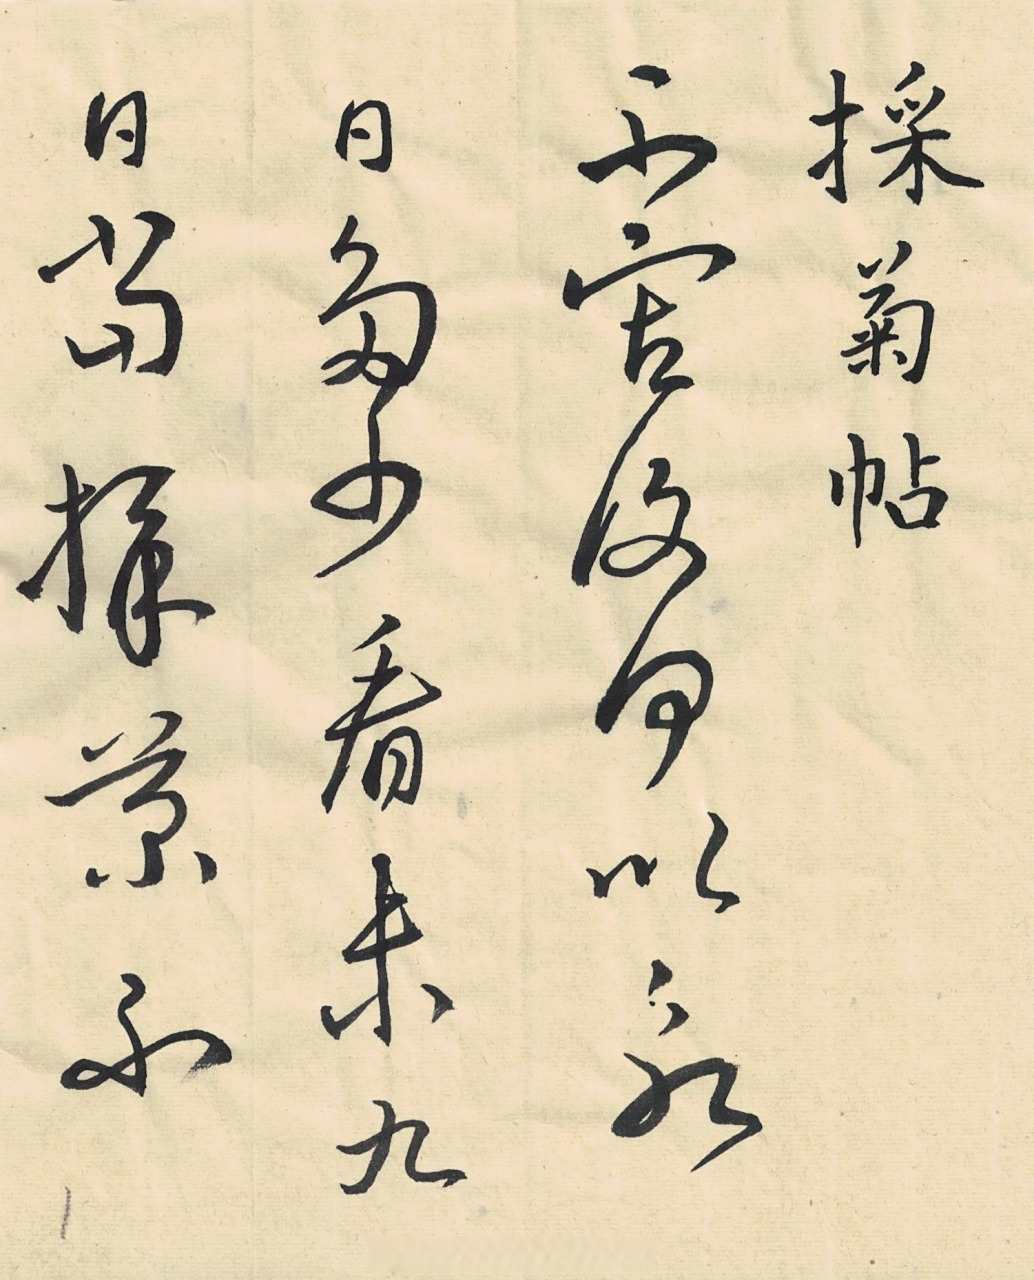 採菊帖
不審復何以永
日多少看未九
日當採菊不